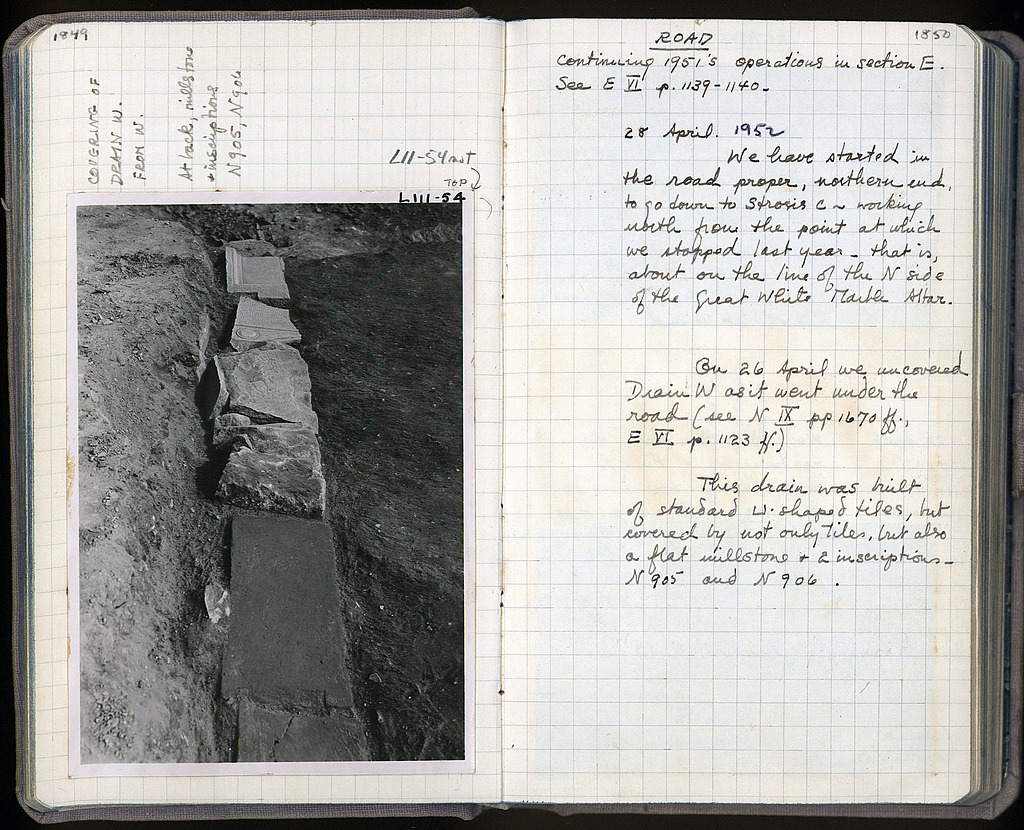 1849
COVERING OF
DRAIN W.
FROM W.
At back, millstone
+ inscriptions
N905, N906
LII-54
TOP
LIII-54
1850
ROAD
Continuing 1951's operations in section E.
See E VI p. 1139-1140.
28 April. 1952
We have started in
the road proper, northern end,
to go down to Strosis C - working
north from the point at which
we stopped last year - that is,
about on the line of the N side
of the Great White Marble Altar.
On 26 April we uncovered
Drain W as it went under the
road (see N IX pp 1670 ff.,
E VI p. 1123 ff.)
This drain was built
of standard ⊔-shaped tiles, but
covered by not only tiles, but also
a flat millstone + 2 inscriptions -
N 905 and N 906 .